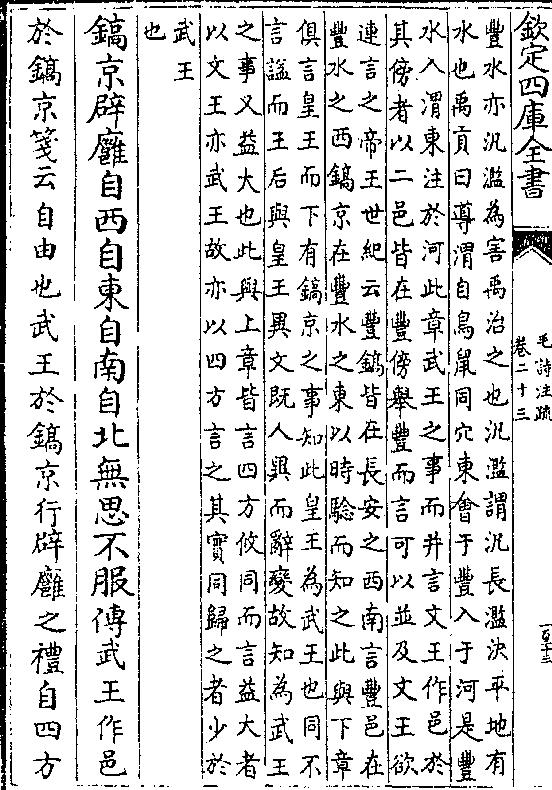 欽定四庫全書
毛詩注疏
卷二十三
豐水亦汎濫為害禹治之也汎濫謂汎長濫決平地有
水也禹貢曰導渭自鳥鼠同穴東會于豐入于河是豐
水入渭東注於河此章武王之事而并言文王作邑於
其傍者以二邑皆在豐傍舉豐而言可以並及文王欲
連言之帝王世紀云豐鎬皆在長安之西南言豐邑在
豐水之西鎬京在豐水之東以時驗而知之此與下章
俱言皇王而下有鎬京之事知此皇王為武王也同不
言諡而王后與皇王異文既人異而辭變故知為武王
之事又益大也此與上章皆言四方攸同而言益大者
以文王亦武王故亦以四方言之其實同歸之者少於
武王
也
鎬京辟廱自西自東自南自北無思不服傳武王作邑
於鎬京箋云自由也武王於鎬京行辟廱之禮自四方